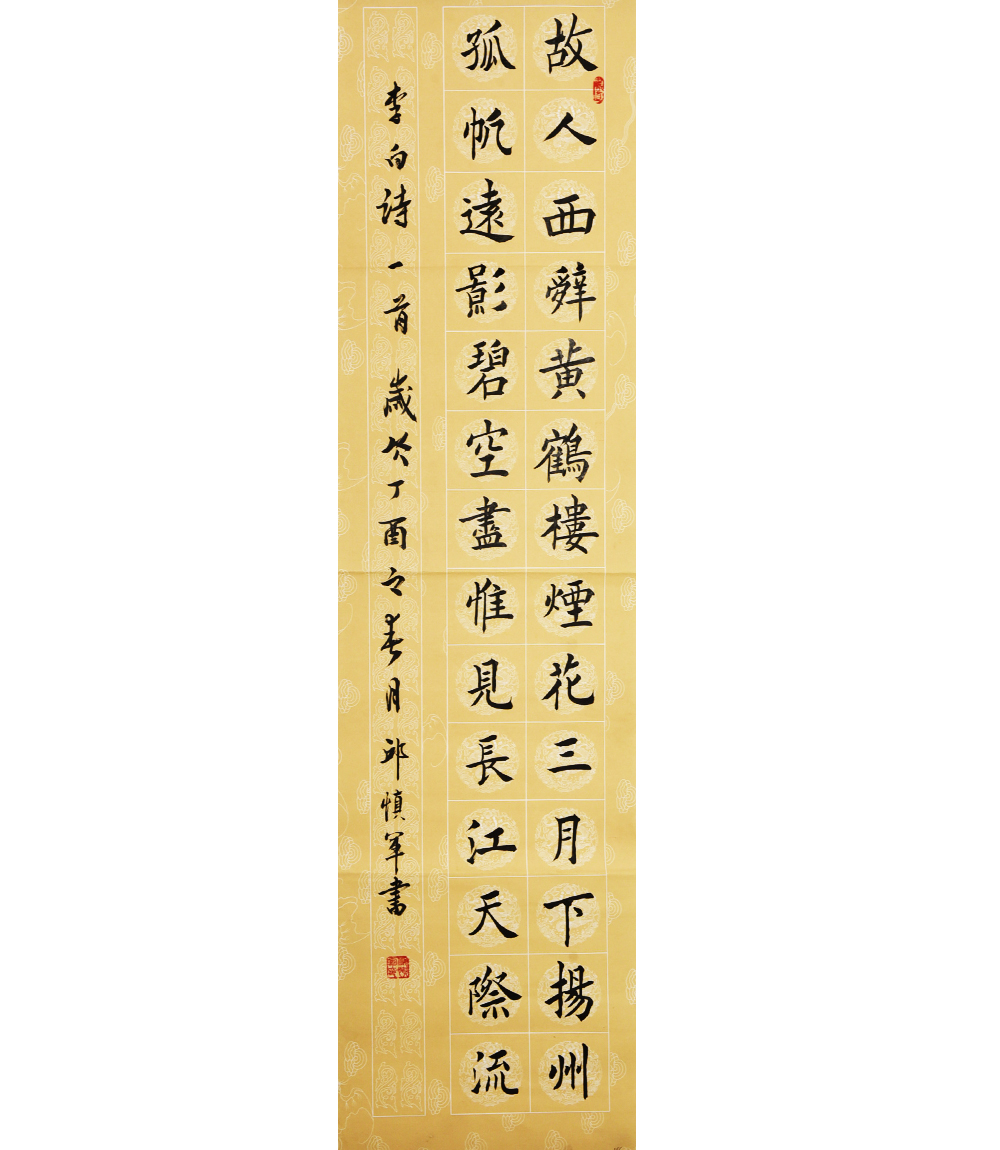 故人西辤黄鶴樓煙花三月下揚州
孤帆遠影碧空盡惟見長江天際流
李白詩一首 歲次丁酉之春月邱慎军書